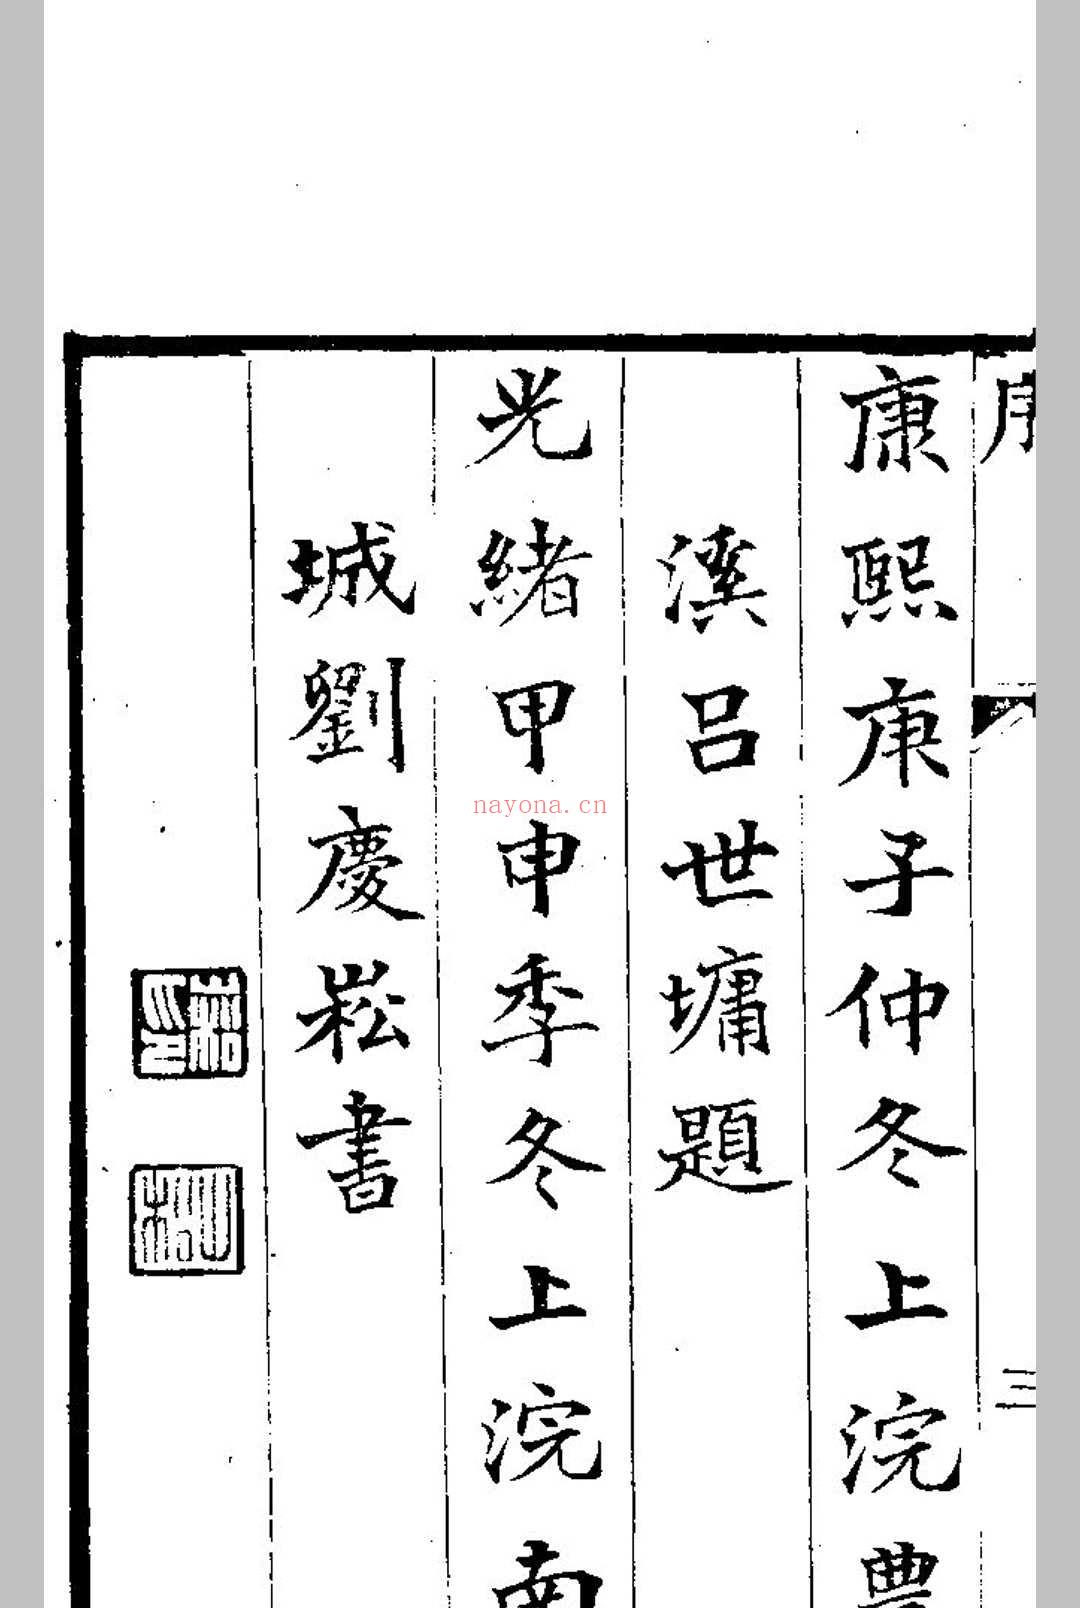 序
三
康熙庚子仲冬上浣豊
溪呂世墉題
光緒甲申季冬上浣南
城劉慶崧書
nayona.cn